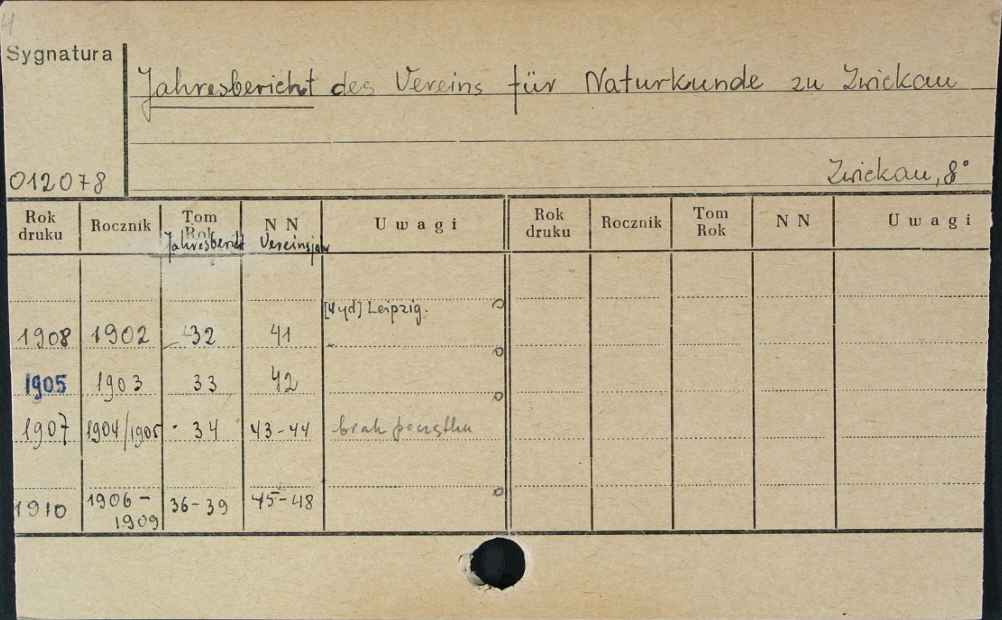 Sygnatura
Jahresbericht des Vereins für Naturkunde zu Zwickau
012078
Zwickau, 8°
Rok druku Rocznik Tom Rok N N Uwagi Rok druku Rocznik Tom Rok N N Uwagi
Jahresbericht Vereinsjahr
[Wyd] Leipzig.
1908 1902 32 41
1905 1903 33 42
1907 1904/1905 34 43-44 brak początku
1910 1906-1909 36-39 45-48